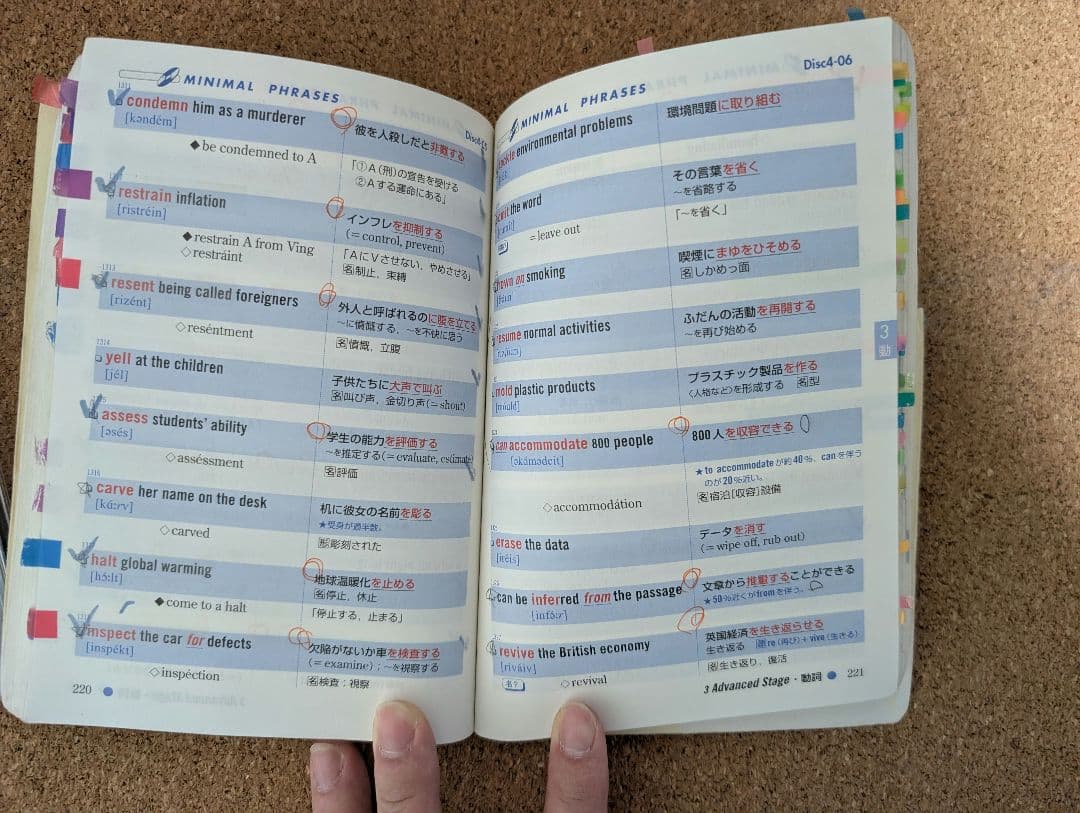 MINIMAL PHRASES
Disc4-05
1311
condemn him as a murderer
[kəndém]
彼を人殺しだと非難する
◆be condemned to A
「①A(刑)の宣告を受ける
②Aする運命にある」
restrain inflation
[ristréin]
インフレを抑制する
(= control, prevent)
◆restrain A from Ving
「AにVさせない，やめさせる」
◇restráint
名制止，束縛
1313
resent being called foreigners
[rizént]
外人と呼ばれるのに腹を立てる
～に憤慨する，～を不快に思う
◇reséntment
名憤慨，立腹
1314
yell at the children
[jél]
子供たちに大声で叫ぶ
名叫び声，金切り声(= shout)
assess students' ability
[əsés]
学生の能力を評価する
～を推定する(= evaluate, estimate)
◇asséssment
名評価
1316
carve her name on the desk
[kɑ́ːrv]
机に彼女の名前を彫る
★受身が過半数。
◇carved
形彫刻された
halt global warming
[hɔ́ːlt]
地球温暖化を止める
名停止，休止
◆come to a halt
「停止する，止まる」
inspect the car for defects
[inspékt]
欠陥がないか車を検査する
(= examine)；～を視察する
◇inspéction
名検査；視察
220
MINIMAL PHRASES
Disc4-06
environmental problems
環境問題に取り組む
the word
その言葉を省く
～を省略する
= leave out
「～を省く」
on smoking
喫煙にまゆをひそめる
名しかめっ面
resume normal activities
ふだんの活動を再開する
～を再び始める
mold plastic products
[móuld]
プラスチック製品を作る
〈人格など〉を形成する 名型
can accommodate 800 people
[əkámədeit]
800人を収容できる
★to accommodateが約40％，canを伴う
のが20％近い。
◇accommodátion
名宿泊[収容]設備
erase the data
[iréis]
データを消す
(= wipe off, rub out)
can be inferred from the passage
[infə́ːr]
文章から推量することができる
★50％近くがfromを伴う。
revive the British economy
[riváiv]
英国経済を生き返らせる
生き返る 源re(再び)+ vive(生きる)
名?
◇revival
名生き返り，復活
3 Advanced Stage・動詞
221
3
動